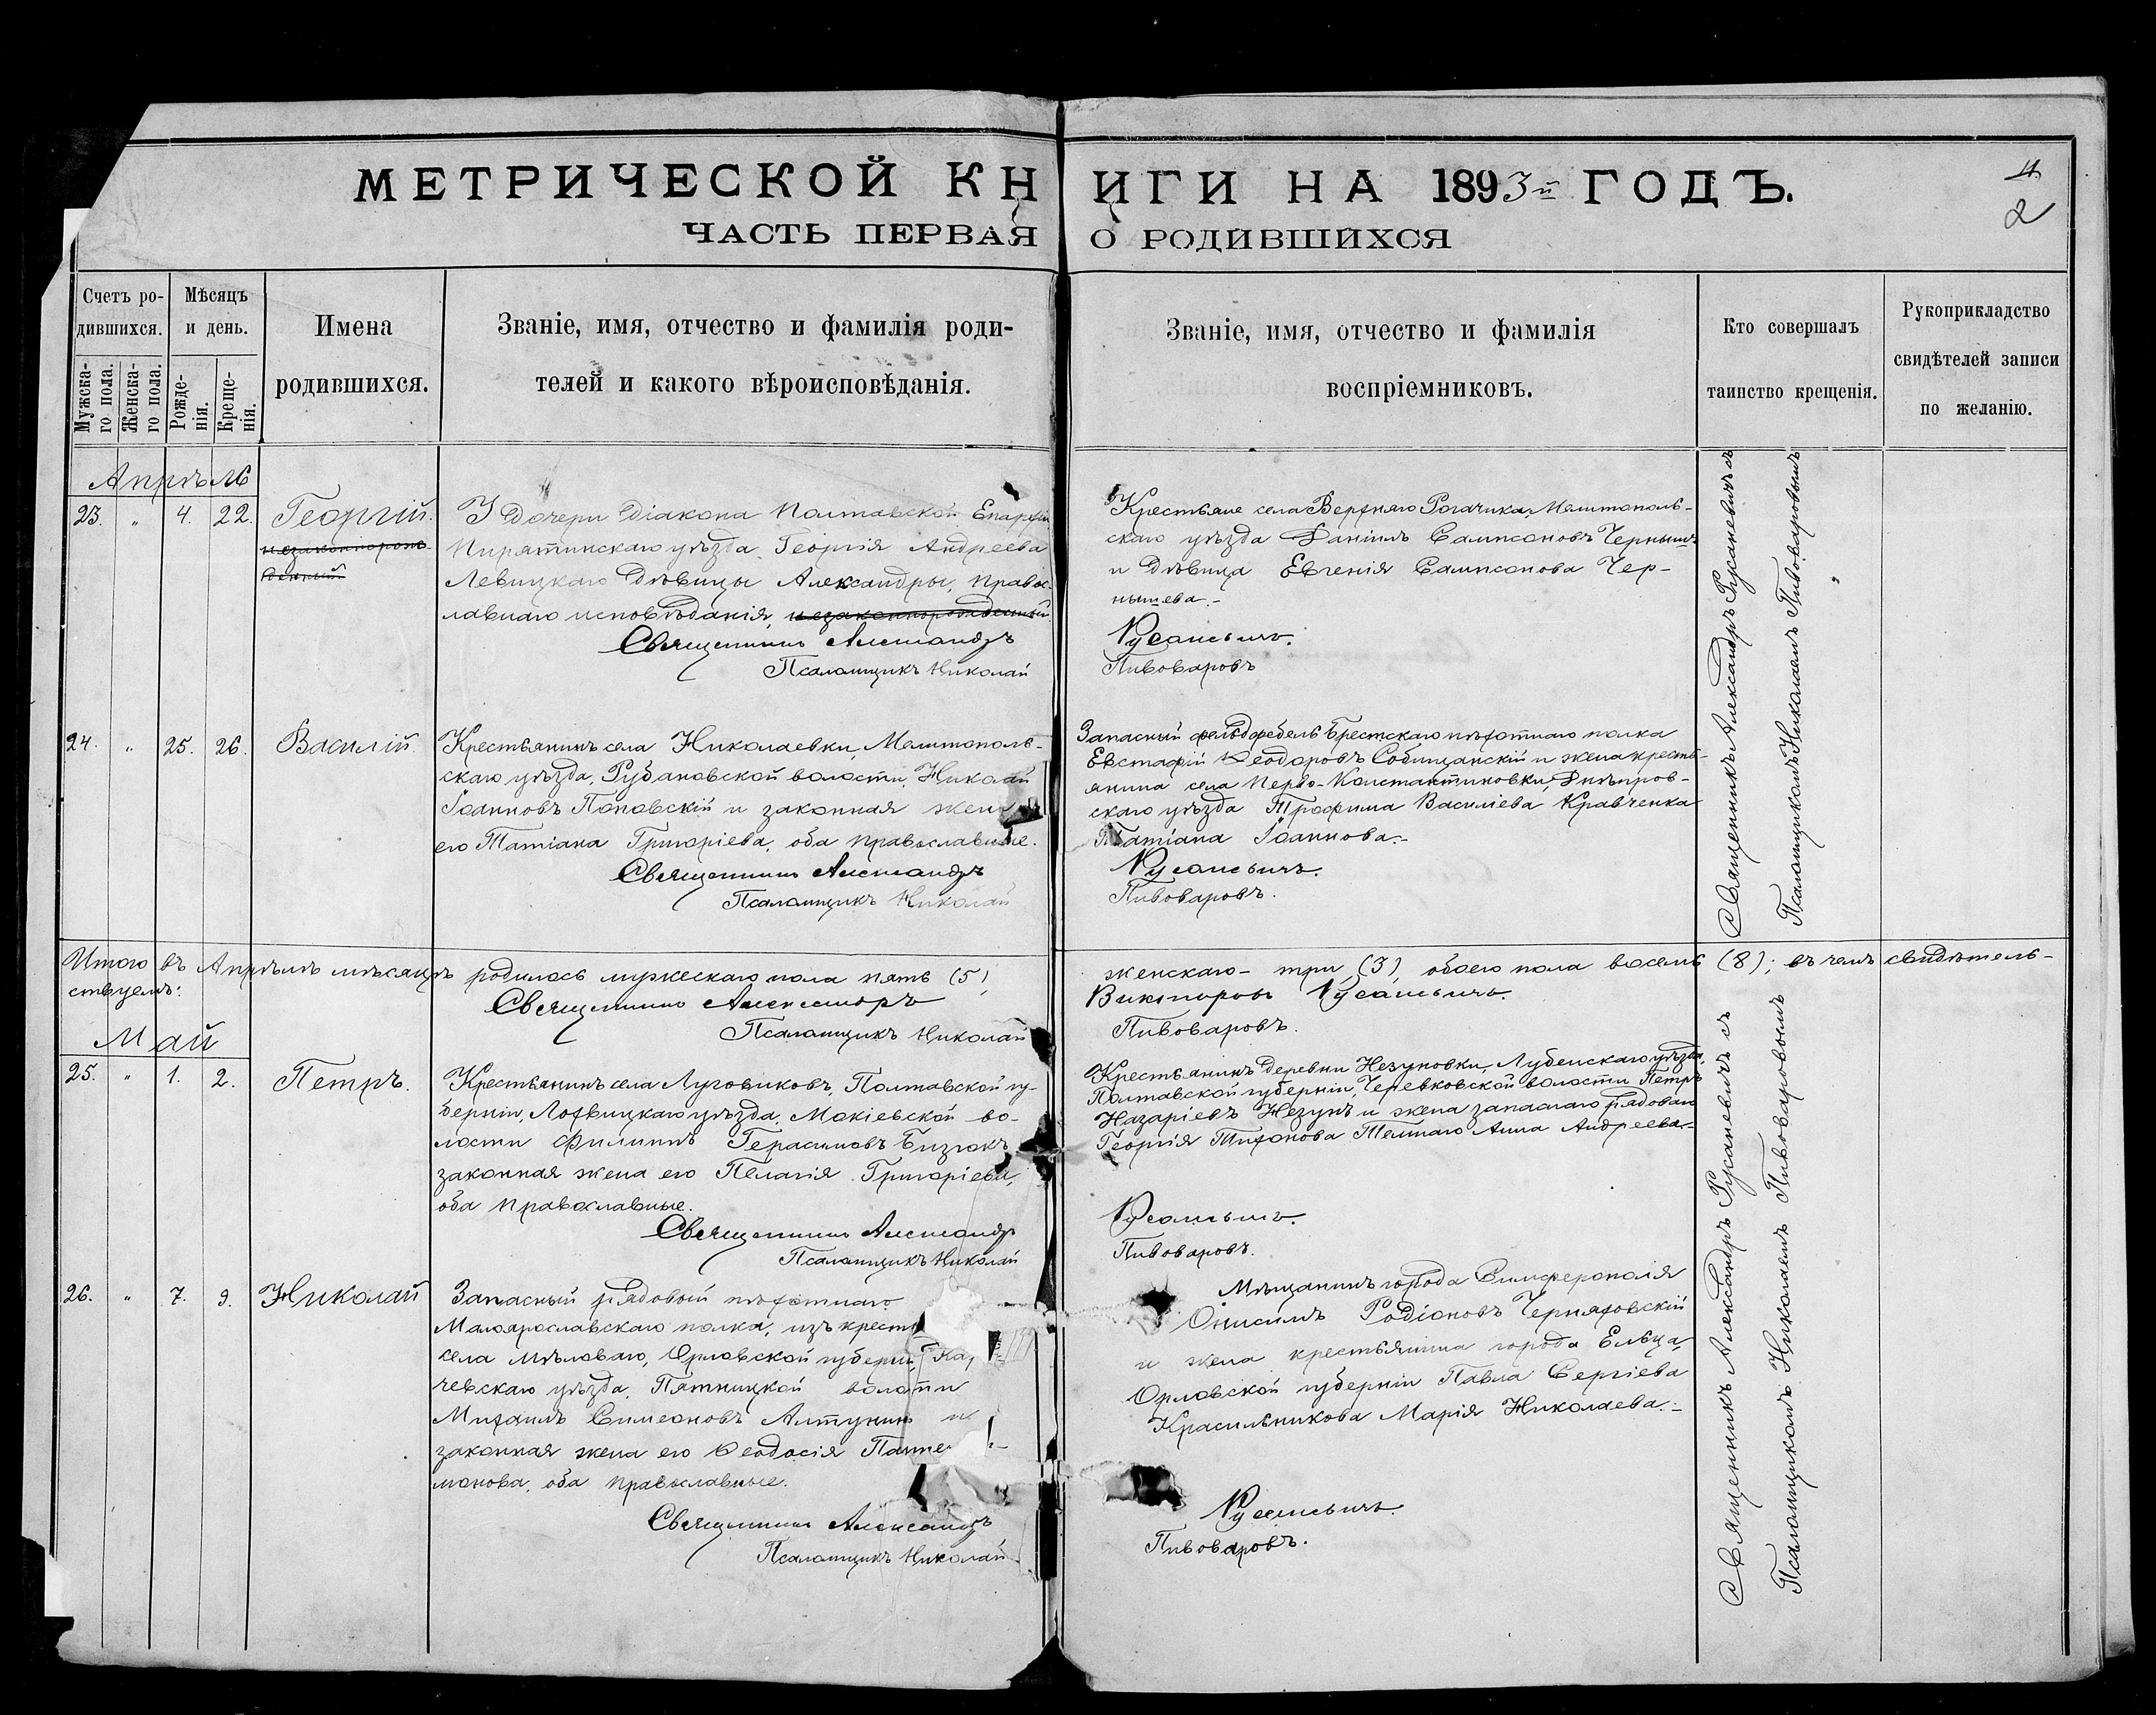 МЕТРИЧЕСКОЙ КНИГИ НА 1893й ГОДЪ.
4.
2
ЧАСТЬ ПЕРВАЯ О РОДИВШИХСЯ
Счетъ ро-
дившихся.
Мужска-
го пола.
Женска-
го пола.
Мѣсяцъ
и день.
Рожде-
нія.
Креще-
нія.
Имена
родившихся.
Званіе, имя, отчество и фамилія роди-
телей и какого вѣроисповѣданія.
Званіе, имя, отчество и фамилія
воспріемниковъ.
Кто совершалъ
таинство крещенія.
Рукоприкладство
свидѣтелей записи
по желанію.
Апрѣль
23. " 4. 22. Георгій.
незаконнорож-
денный
У дочери діакона Полтавской Епархіи
Пирятинскаго уѣзда, Георгія Андреева
Левицкаго дѣвицы Александры, правос-
лавнаго исповѣданія, незаконнорожденный.
Священникъ Александръ
Псаломщикъ Николай
Крестьяне села Верхняго Рогачика, Мелитополь-
скаго уѣзда Даніилъ Сампсоновъ Чернышъ
и дѣвица Евгенія Сампсонова Чер-
нышева.-
Русаневичъ.
Пивоваровъ
24. " 25. 26. Василій.
Крестьянинъ села Николаевки, Мелитополь-
скаго уѣзда, Рубановской волости, Николай
Іоанновъ Поповскій и законная жена
его Татіана Григоріева, оба православные.
Священникъ Александръ
Псаломщикъ Николай
Запасный фельдфебель Брестскаго пѣхотнаго полка
Евстафій Ѳеодоровъ Собищанскій и жена кресть-
янина села Перво-Константиновки, Днѣпров-
скаго уѣзда Трофима Василіева Кравченка
Татіана Іоаннова.-
Русаневичъ.
Пивоваровъ.
Священникъ Александръ Русаневичъ съ
Псаломщикомъ Николаемъ Пивоваровымъ
Итого въ Апрѣлѣ мѣсяцѣ родилось мужескаго пола пять (5), женскаго - три (3), обоего пола восемь (8); въ чемъ свидѣтель-
ствуемъ:
Священникъ Александръ Викторовъ Русаневичъ.
Псаломщикъ Николай Пивоваровъ.
Май
25. " 1. 2. Петръ.
Крестьянинъ села Луговиковъ, Полтавской гу-
берніи, Лохвицкаго уѣзда, Мокіевской во-
лости Филиппъ Герасимовъ Бизюкъ
законная жена его Пелагія Григоріева,
оба православные.
Священникъ Александръ
Псаломщикъ Николай
Крестьянинъ деревни Незуновки, Лубенскаго уѣзда,
Полтавской губерніи, Черевковской волости Петръ
Назаріевъ Незунъ и жена запаснаго рядоваго
Георгія Тихонова Теплаго Анна Андреева.-
Русаневичъ.
Пивоваровъ.
26. " 7. 9. Николай
Запасный рядовой пѣхотнаго
Малоярославскаго полка, изъ крест
села Мѣловаго, Орловской губерн Ка
чевскаго уѣзда, Пятницкой волости
Михаилъ Симеоновъ Алтунинъ и
законная жена его Ѳеодосія Панте
монова, оба православные.
Священникъ Александръ
Псаломщикъ Николай
Мѣщанинъ города Симферополя
Онисимъ Родіоновъ Черняховскій
и жена крестьянина города Ельца,
Орловской губерніи Павла Сергіева
Красильникова Марія Николаева.-
Русаневичъ.
Пивоваровъ.
Священникъ Александръ Русаневичъ съ
Псаломщикомъ Николаемъ Пивоваровымъ